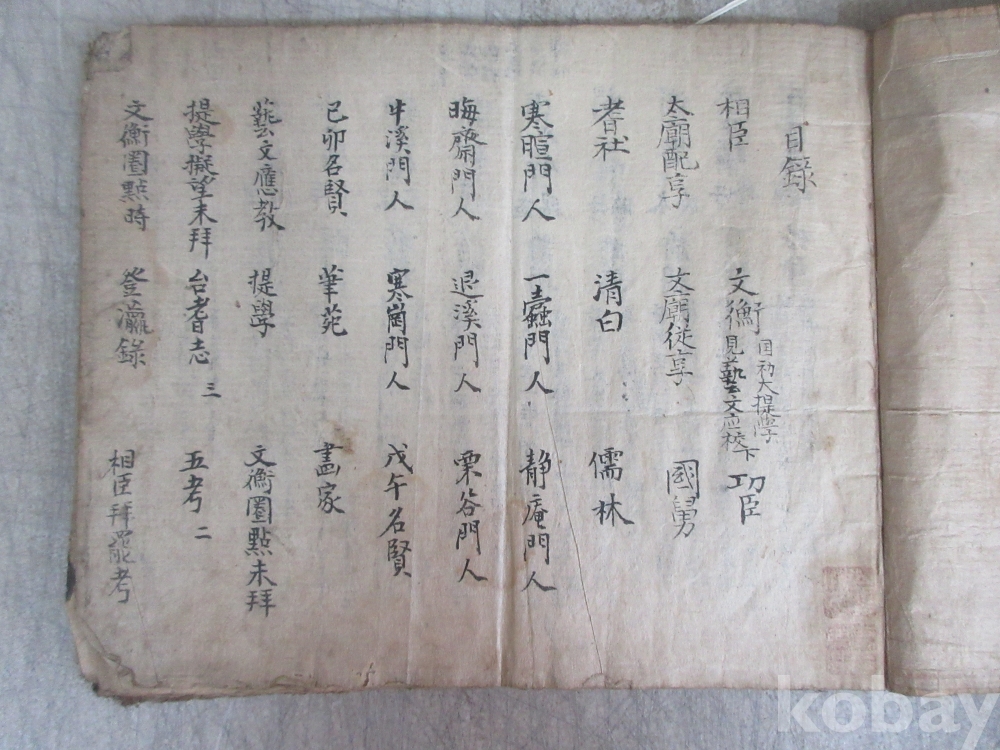 目錄
相臣 文衡 国初大提學見藝文应校下 功臣
太廟配享 文廟從享 國舅
耆社 清白 儒林
寒暄門人 一蠹門人 靜庵門人
晦齋門人 退溪門人 栗谷門人
牛溪門人 寒岡門人 戊午名賢
已卯名賢 華苑 畵家
藝文應教 提學 文衡圈點未拜
提學擬望未拜 台耆志 三 五考 二
文衡圈點時 登瀛錄 相臣拜罷考
kobay